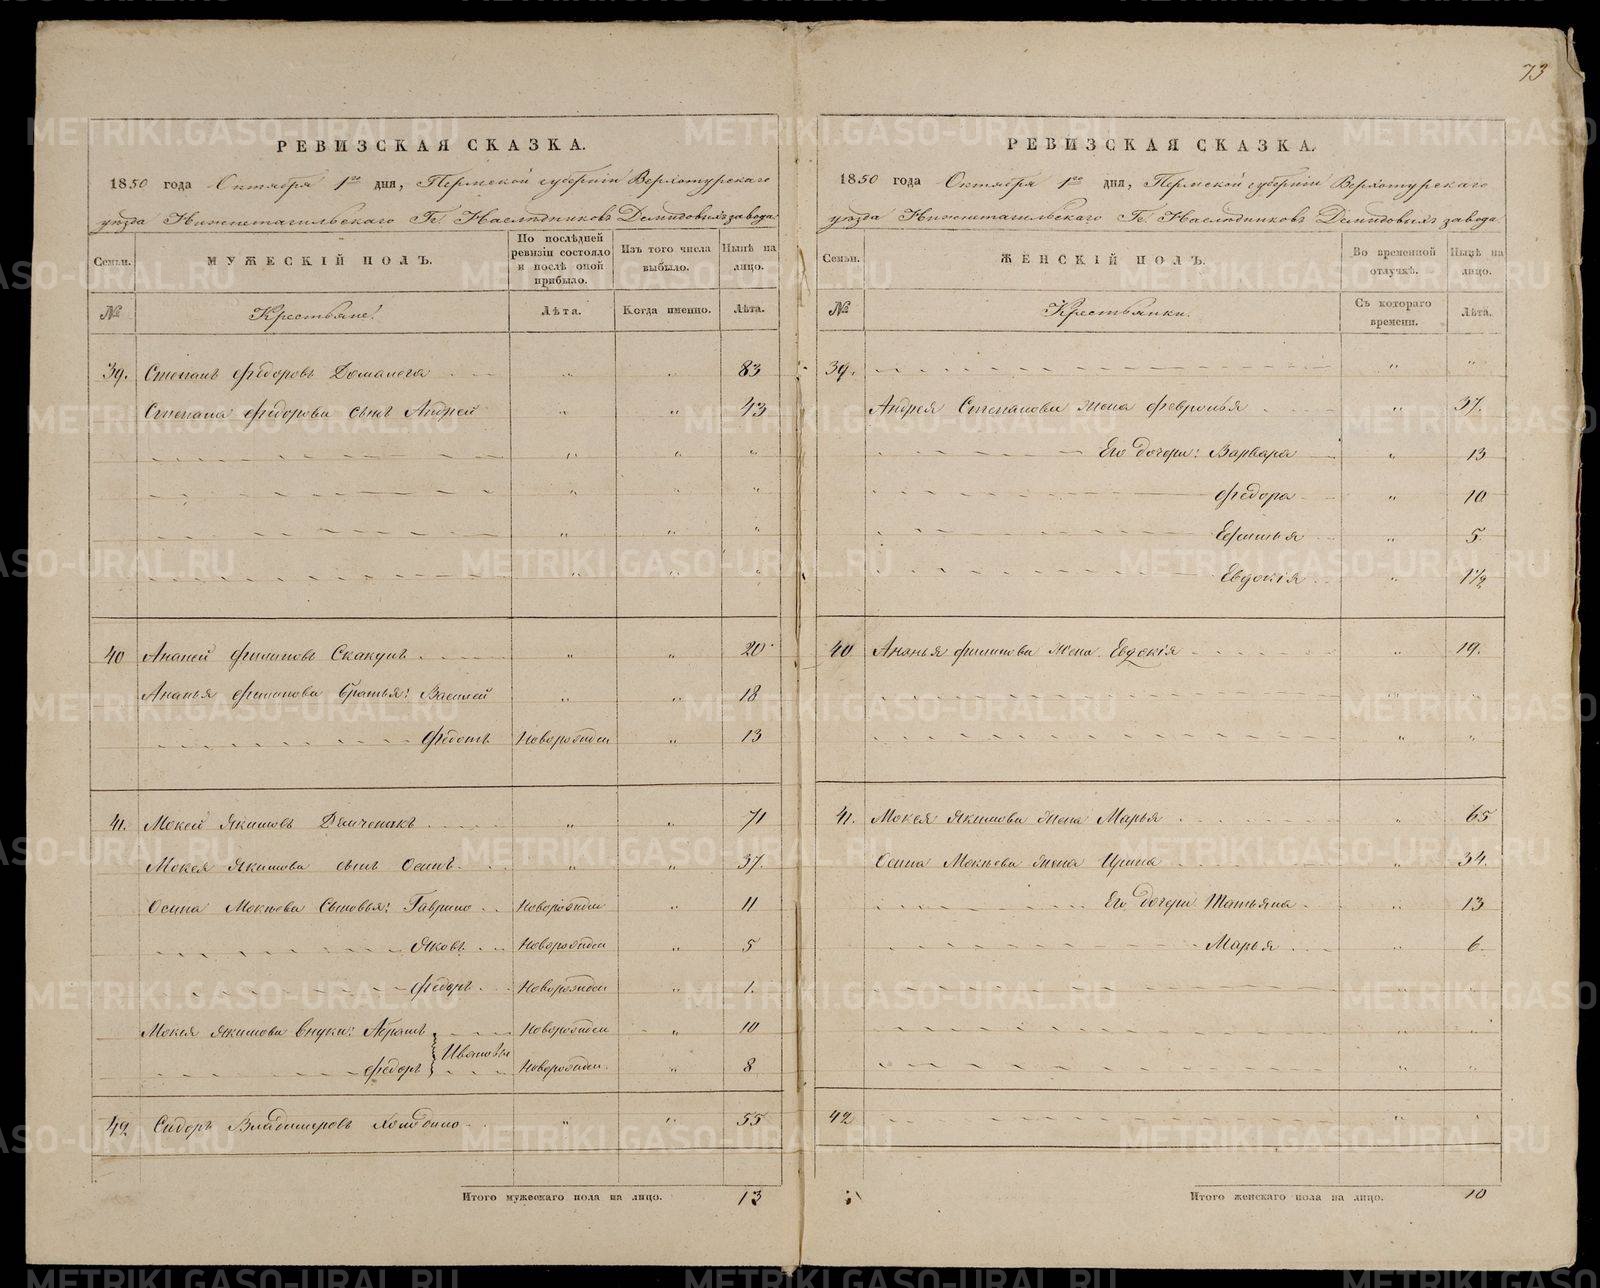 73
РЕВИЗСКАЯ СКАЗКА.
1850 года Октября 1го дня, Пермской губерніи Верхотурскаго
уѣзда Нижнетагильскаго Гг. Наслѣдниковъ Демидовыхъ завода.
Семьи.
МУЖЕСКІЙ ПОЛЪ.
По послѣдней ревизіи состояло и послѣ оной прибыло.
Изъ того числа выбыло.
Нынѣ на лицо.
№
Крестьяне:
Лѣта.
Когда именно.
Лѣта.
39. Степанъ Федоровъ " " 83
Степана Федорова сынъ Андрей " " 43
" " "
" " "
" " "
" " "
40 Ананей Филиповъ Скакунъ " " 20
Ананья Филипова братья: Василей " " 18
Федотъ Новорожден " 13
41. Мокей Якимовъ Демченакъ " " 71
Мокея Якимова сынъ Осипъ " " 37.
Осипа Мокѣева Сыновья: Гаврило Новорожден " 11
Яковъ Новорожден " 5
Федоръ Новорожден " 1.
Мокея Якимова Внуки: Абрамъ Ивановы Новорожден " 10
Федоръ Новорожден. " 8
42 Сидоръ Владимировъ " " 55
Итого мужескаго пола на лицо. 13
РЕВИЗСКАЯ СКАЗКА.
1850 года Октября 1го дня, Пермской губерніи Верхотурскаго
уѣзда Нижнетагильскаго Гг. Наслѣдниковъ Демидовыхъ завода.
Семьи.
ЖЕНСКІЙ ПОЛЪ.
Во временной отлучкѣ.
Нынѣ на лицо.
№
Крестьянки.
Съ котораго времени.
Лѣта.
39. " "
Андрея Степанова жена Февронья " 37.
Его дочери: Варвара " 13
Федора " 10
Ефимья " 5
Евдокія " 1½
40 Ананья Филипова Жена Евдокія " 19.
" "
" "
41. Мокея Якимова жена Марья " 65
Осипа Мокѣева жена Ирина " 34.
Его дочери Татьяна " 13
Марья " 6
" "
" "
" "
42 " "
Итого женскаго пола на лицо. 10
METRIKI.GASO-URAL.RU